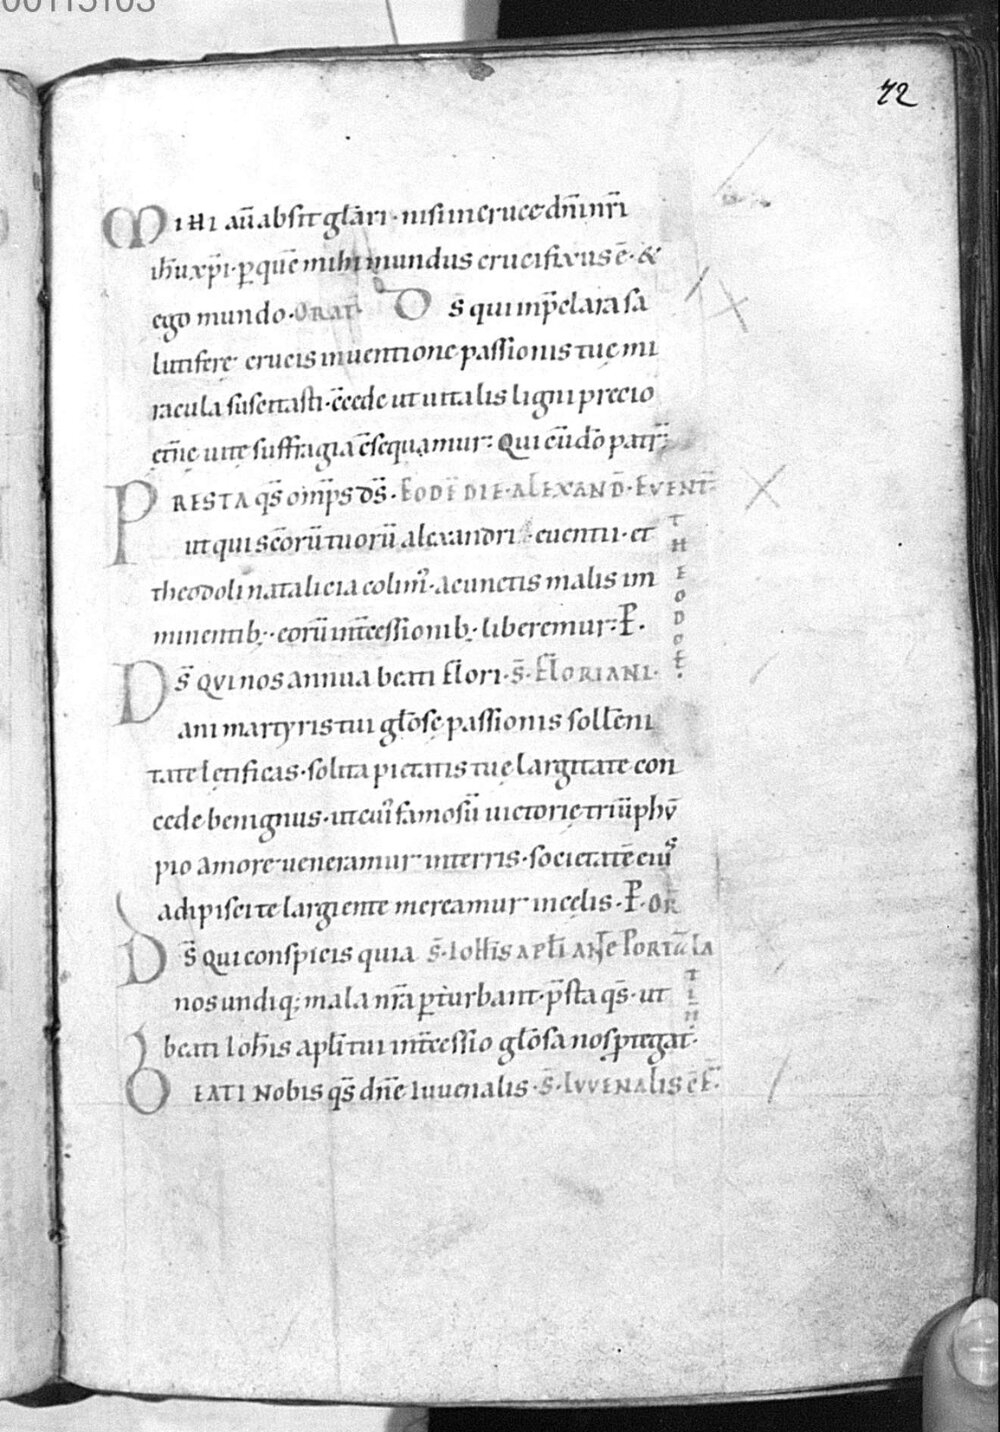 00115103
72
MIHI aū absit gl̄ari · nisi in cruce dn̄i nr̄i
ih̄u xp̄i · ꝑ quē mihi mundus crucifixus ē · &
ego mundo · ORAT̄ · D̄s qui in p̄clara sa
lutiferę crucis inuentione passionis tuę mi
racula suscitasti · c̄cede ut uitalis ligni precio
ęt̄nę uitę suffragia c̄sequamur : Qui cū dō patr̄ ;
PRESTA qs̄ om̄ps ds̄ · EODĒ DIE · ALEXAND̄ · EVENT̄ ·
THEODOŁ ·
ut qui sc̄orū tuorū alexandri · euentii · et
theodoli natalicia colim᷒ · a cunctis malis im
minentib; · eorū int̄cessionib; · liberemur : P̄ ·
D̄S QVI nos annua beati flori · S̄ · FLORIANI ·
ani martyris tui gl̄osę passionis soll̄eni
tate lętificas · solita pietatis tuę largitate con
cede benignus · ut cui᷒ famosū uictorię triūphū
pio amore ueneramur in terris · societatē eiu᷒
adipisci te largiente mereamur in cęlis · P̄ · OR̄
D̄S QUI conspicis quia S̄ · IOH̄IS APŁI ANTE PORTĀ LA
TIN̄
nos undiq; mala nr̄a ꝑturbant · p̄sta qs̄ · ut
beati Ioh̄is apłi tui int̄cessio gl̄osa nos ꝓtegat ·
BEATI Nobis qs̄ dn̄e Iuuenalis · S̄ · IVVENALIS ēt̄ ·